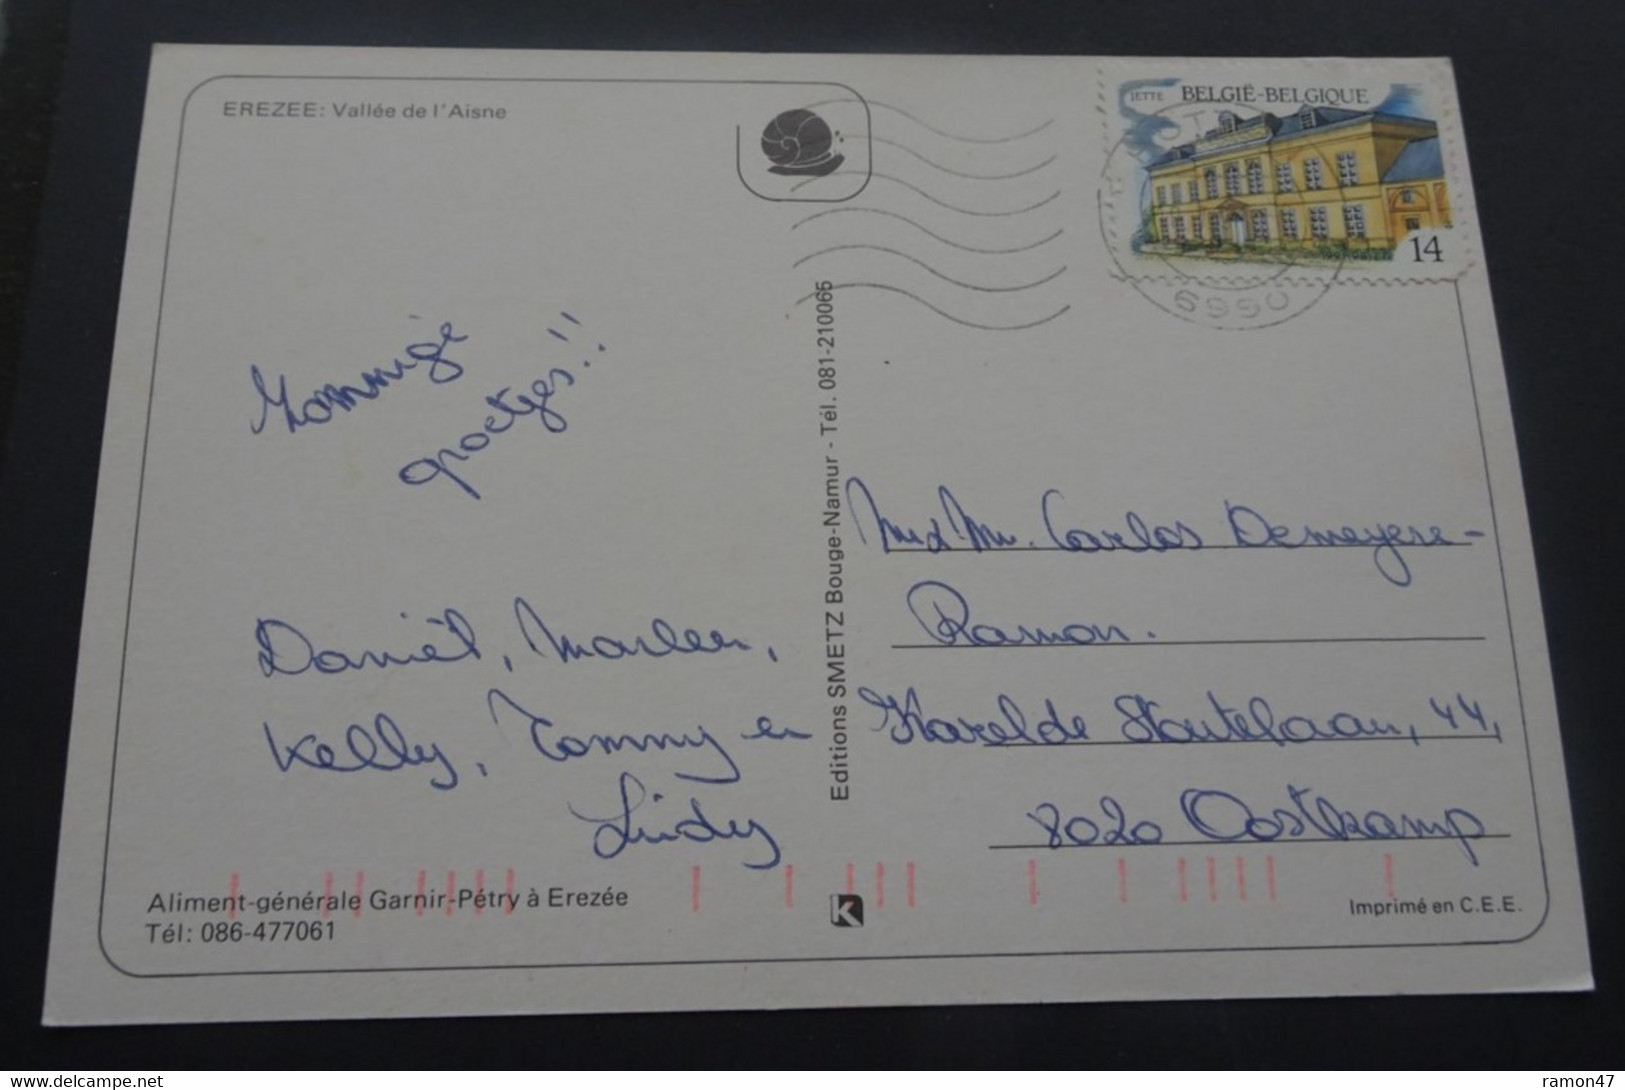 EREZEE: Vallée de l'Aisne
JETTE BELGIË-BELGIQUE
14
6990
Zonnige
groetjes!!
Daniël, Marleen,
Kelly, Tommy en
Lindy
Editions SMETZ Bouge-Namur - Tél. 081-210065
Carlos Demeyere-
Ramon.
Karel de Stoutelaan, 44,
8020 Oostkamp
Aliment-générale Garnir-Pétry à Erezée
Tél: 086-477061
K
Imprimé en C.E.E.
ramon47